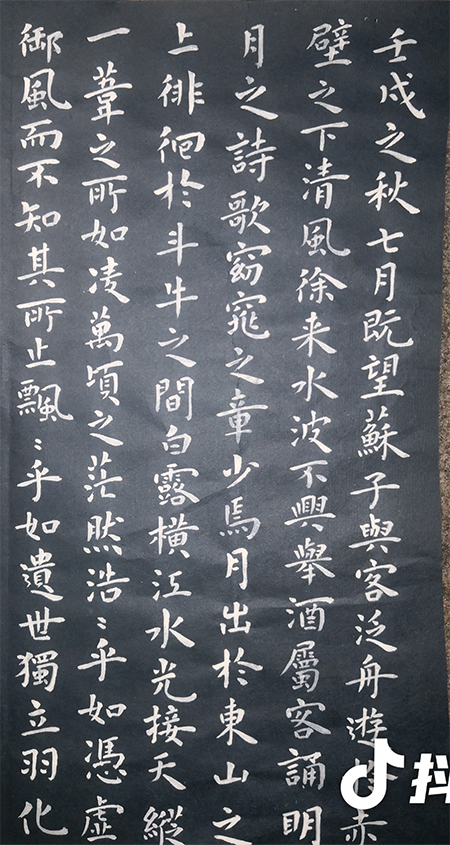 壬戌之秋七月既望蘇子與客泛舟遊於赤
壁之下清風徐来水波不興舉酒屬客誦明
月之詩歌窈窕之章少焉月出於東山之
上徘徊於斗牛之間白露橫江水光接天縱
一葦之所如凌萬頃之茫然浩〻乎如憑虛
御風而不知其所止飄〻乎如遺世獨立羽化
抖